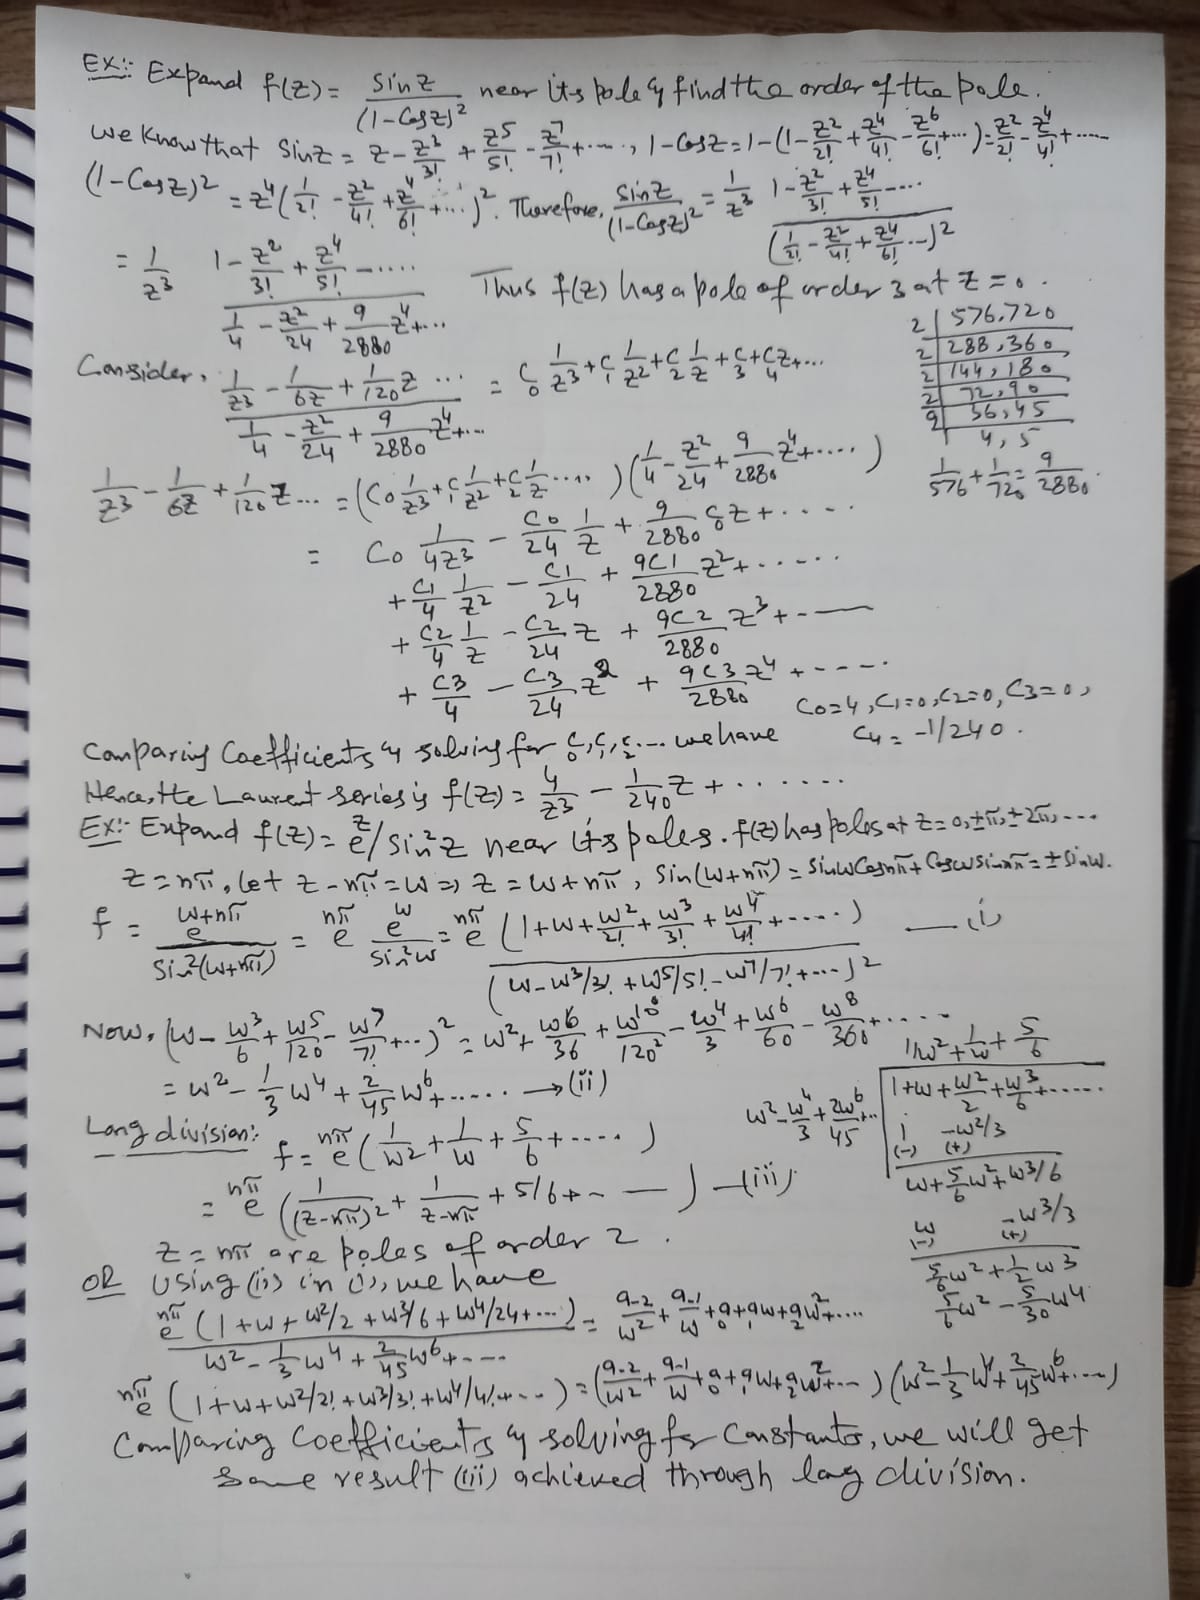 Ex:- Expand f(z) = sinz/(1-Cosz)² near its pole & find the order of the pole.
We know that sinz = z - z³/3! + z⁵/5! - z⁷/7! + ....., 1-Cosz = 1-(1 - z²/2! + z⁴/4! - z⁶/6! + ...) = z²/2! - z⁴/4! + .....
(1-Cosz)² = z⁴(1/2! - z²/4! + z⁴/6! + ...)². Therefore, sinz/(1-Cosz)² = 1/z³ (1 - z²/3! + z⁴/5! - ....)/(1/2! - z²/4! + z⁴/6! ...)²
= 1/z³ (1 - z²/3! + z⁴/5! - .....)/(1/4 - z²/24 + 9/2880 z⁴ + ...) Thus f(z) has a pole of order 3 at z = 0.
2 | 576, 720
2 | 288, 360
2 | 144, 180
2 | 72, 90
9 | 36, 45
4, 5
1/576 + 1/720 = 9/2880.
Consider, (1/z³ - 1/6z + 1/120 z ...)/(1/4 - z²/24 + 9/2880 z⁴ + ...) = c₀ 1/z³ + c₁ 1/z² + c₂ 1/z + c₃ + c₄z + ...
1/z³ - 1/6z + 1/120 z ... = (c₀ 1/z³ + c₁ 1/z² + c₂ 1/z ....)(1/4 - z²/24 + 9/2880 z⁴ + ....)
= c₀ 1/4z³ - c₀/24 1/z + 9/2880 c₀z + .....
+ c₁/4 1/z² - c₁/24 + 9c₁/2880 z² + ......
+ c₂/4 1/z - c₂/24 z + 9c₂/2880 z³ + - —
+ c₃/4 - c₃/24 z² + 9c₃/2880 z⁴ + - - - -.
c₀=4, c₁=0, c₂=0, c₃=0,
c₄ = -1/240.
Comparing Coefficients & solving for c₀, c₁, c₂ ... we have
Hence, the Laurent series is f(z) = 4/z³ - 1/240 z + ........
Ex:- Expand f(z) = e^z/sin²z near its poles. f(z) has poles at z = 0, ±π, ±2π, ...
z = nπ, Let z - nπ = w => z = w + nπ, sin(w+nπ) = sinw cosnπ + cosw sinnπ = ± sinw.
f = e^(w+nπ)/sin²(w+nπ) = e^nπ e^w/sin²w = e^nπ (1 + w + w²/2! + w³/3! + w⁴/4! + .....)/(w - w³/3! + w⁵/5! - w⁷/7! + ...)² — (i)
Now, (w - w³/6 + w⁵/120 - w⁷/7! + ...)² = w² + w⁶/36 + w¹⁰/120² - w⁴/3 + w⁶/60 - w⁸/360 + .....
= w² - 1/3 w⁴ + 2/45 w⁶ + ..... → (ii)
Long division:- f = e^nπ (1/w² + 1/w + 5/6 + ....)
= e^nπ (1/(z-nπ)² + 1/(z-nπ) + 5/6 + - —) — (iii)
1/w² + 1/w + 5/6
w² - w⁴/3 + 2w⁶/45 + .. | 1 + w + w²/2 + w³/6 + .....
1 - w²/3
(-) (+)
w + 5/6 w² + w³/6
w - w³/3
(-) (+)
5/6 w² + 1/2 w³
5/6 w² - 5/30 w⁴
z = nπ are poles of order 2.
OR Using (ii) in (i), we have
e^nπ (1 + w + w²/2 + w³/6 + w⁴/24 + ...)/(w² - 1/3 w⁴ + 2/45 w⁶ + ....) = a₋₂/w² + a₋₁/w + a₀ + a₁w + a₂w² + ....
e^nπ (1 + w + w²/2! + w³/3! + w⁴/4! + ...) = (a₋₂/w² + a₋₁/w + a₀ + a₁w + a₂w² + ...)(w² - 1/3 w⁴ + 2/45 w⁶ + ....)
Comparing Coefficients & solving for Constants, we will get
same result (iii) achieved through long division.